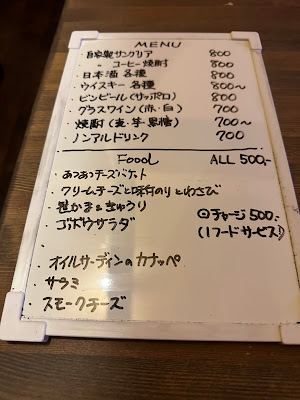 MENU
・自家製サングリア 800
・〃 コーヒー焼酎 800
・日本酒 各種 800
・ウイスキー 各種 800〜
・ビンビール(サッポロ) 800
・グラスワイン(赤・白) 700
・焼酎(麦・芋・黒糖) 700〜
・ノンアルドリンク 700
Food ALL 500,-
・あつあつチーズバケット
・クリームチーズと味付のりとわさび
・笹かま&きゅうり
・ゴボウサラダ
◎チャージ 500,-
(1フードサービス)
・オイルサーディンのカナッペ
・サラミ
・スモークチーズ